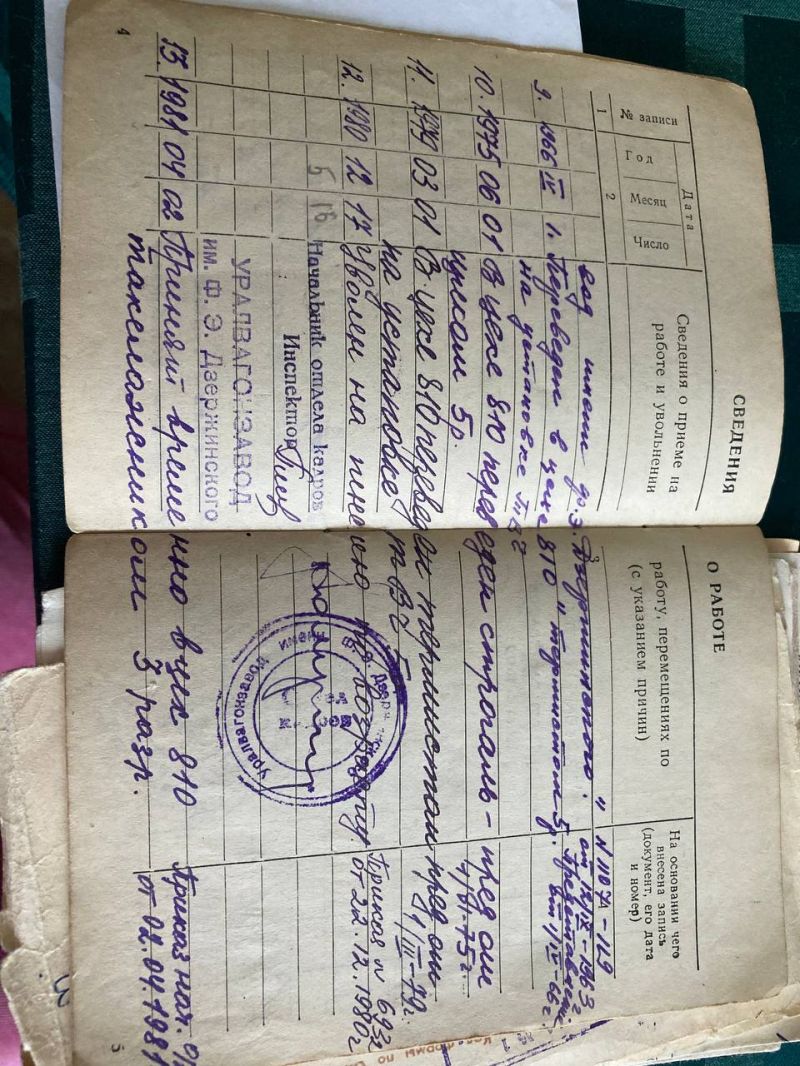 СВЕДЕНИЯ О РАБОТЕ
№ записи
Дата
Год
Месяц
Число
Сведения о приеме на работу, перемещениях по
работе и увольнении (с указанием причин)
На основании чего
внесена запись
(документ, его дата
и номер)
1
2
3
вод имени Ф.Э. Дзержинского".
N 1107Л-119
от 12/IX-1963 г
9. 1966 IV 1. Переведен в цехе 810 "термистом 5р.
на установке ТВЧ
от 1/IV-66 г.
10. 1975 06 01 В цехе 810 переведен строгаль-
пред от
щиком 5р.
11. 1979 03 01 В цехе 810 переведен термистом
пред от
на установке ТВЧ 5
1/III-79г.
12. 1980 12 17 Уволен на пенсию по возрасту
Приказ N 693
от 22.12.1980г
Начальник отдела кадров
Инспектор
УРАЛВАГОНЗАВОД
им. Ф. Э. Дзержинского
Уралвагонозавод
13. 1981 04 02 Принят временно в цех 810
Приказ нач.
такелажником 3 разр.
от 02.04.1981
4
5